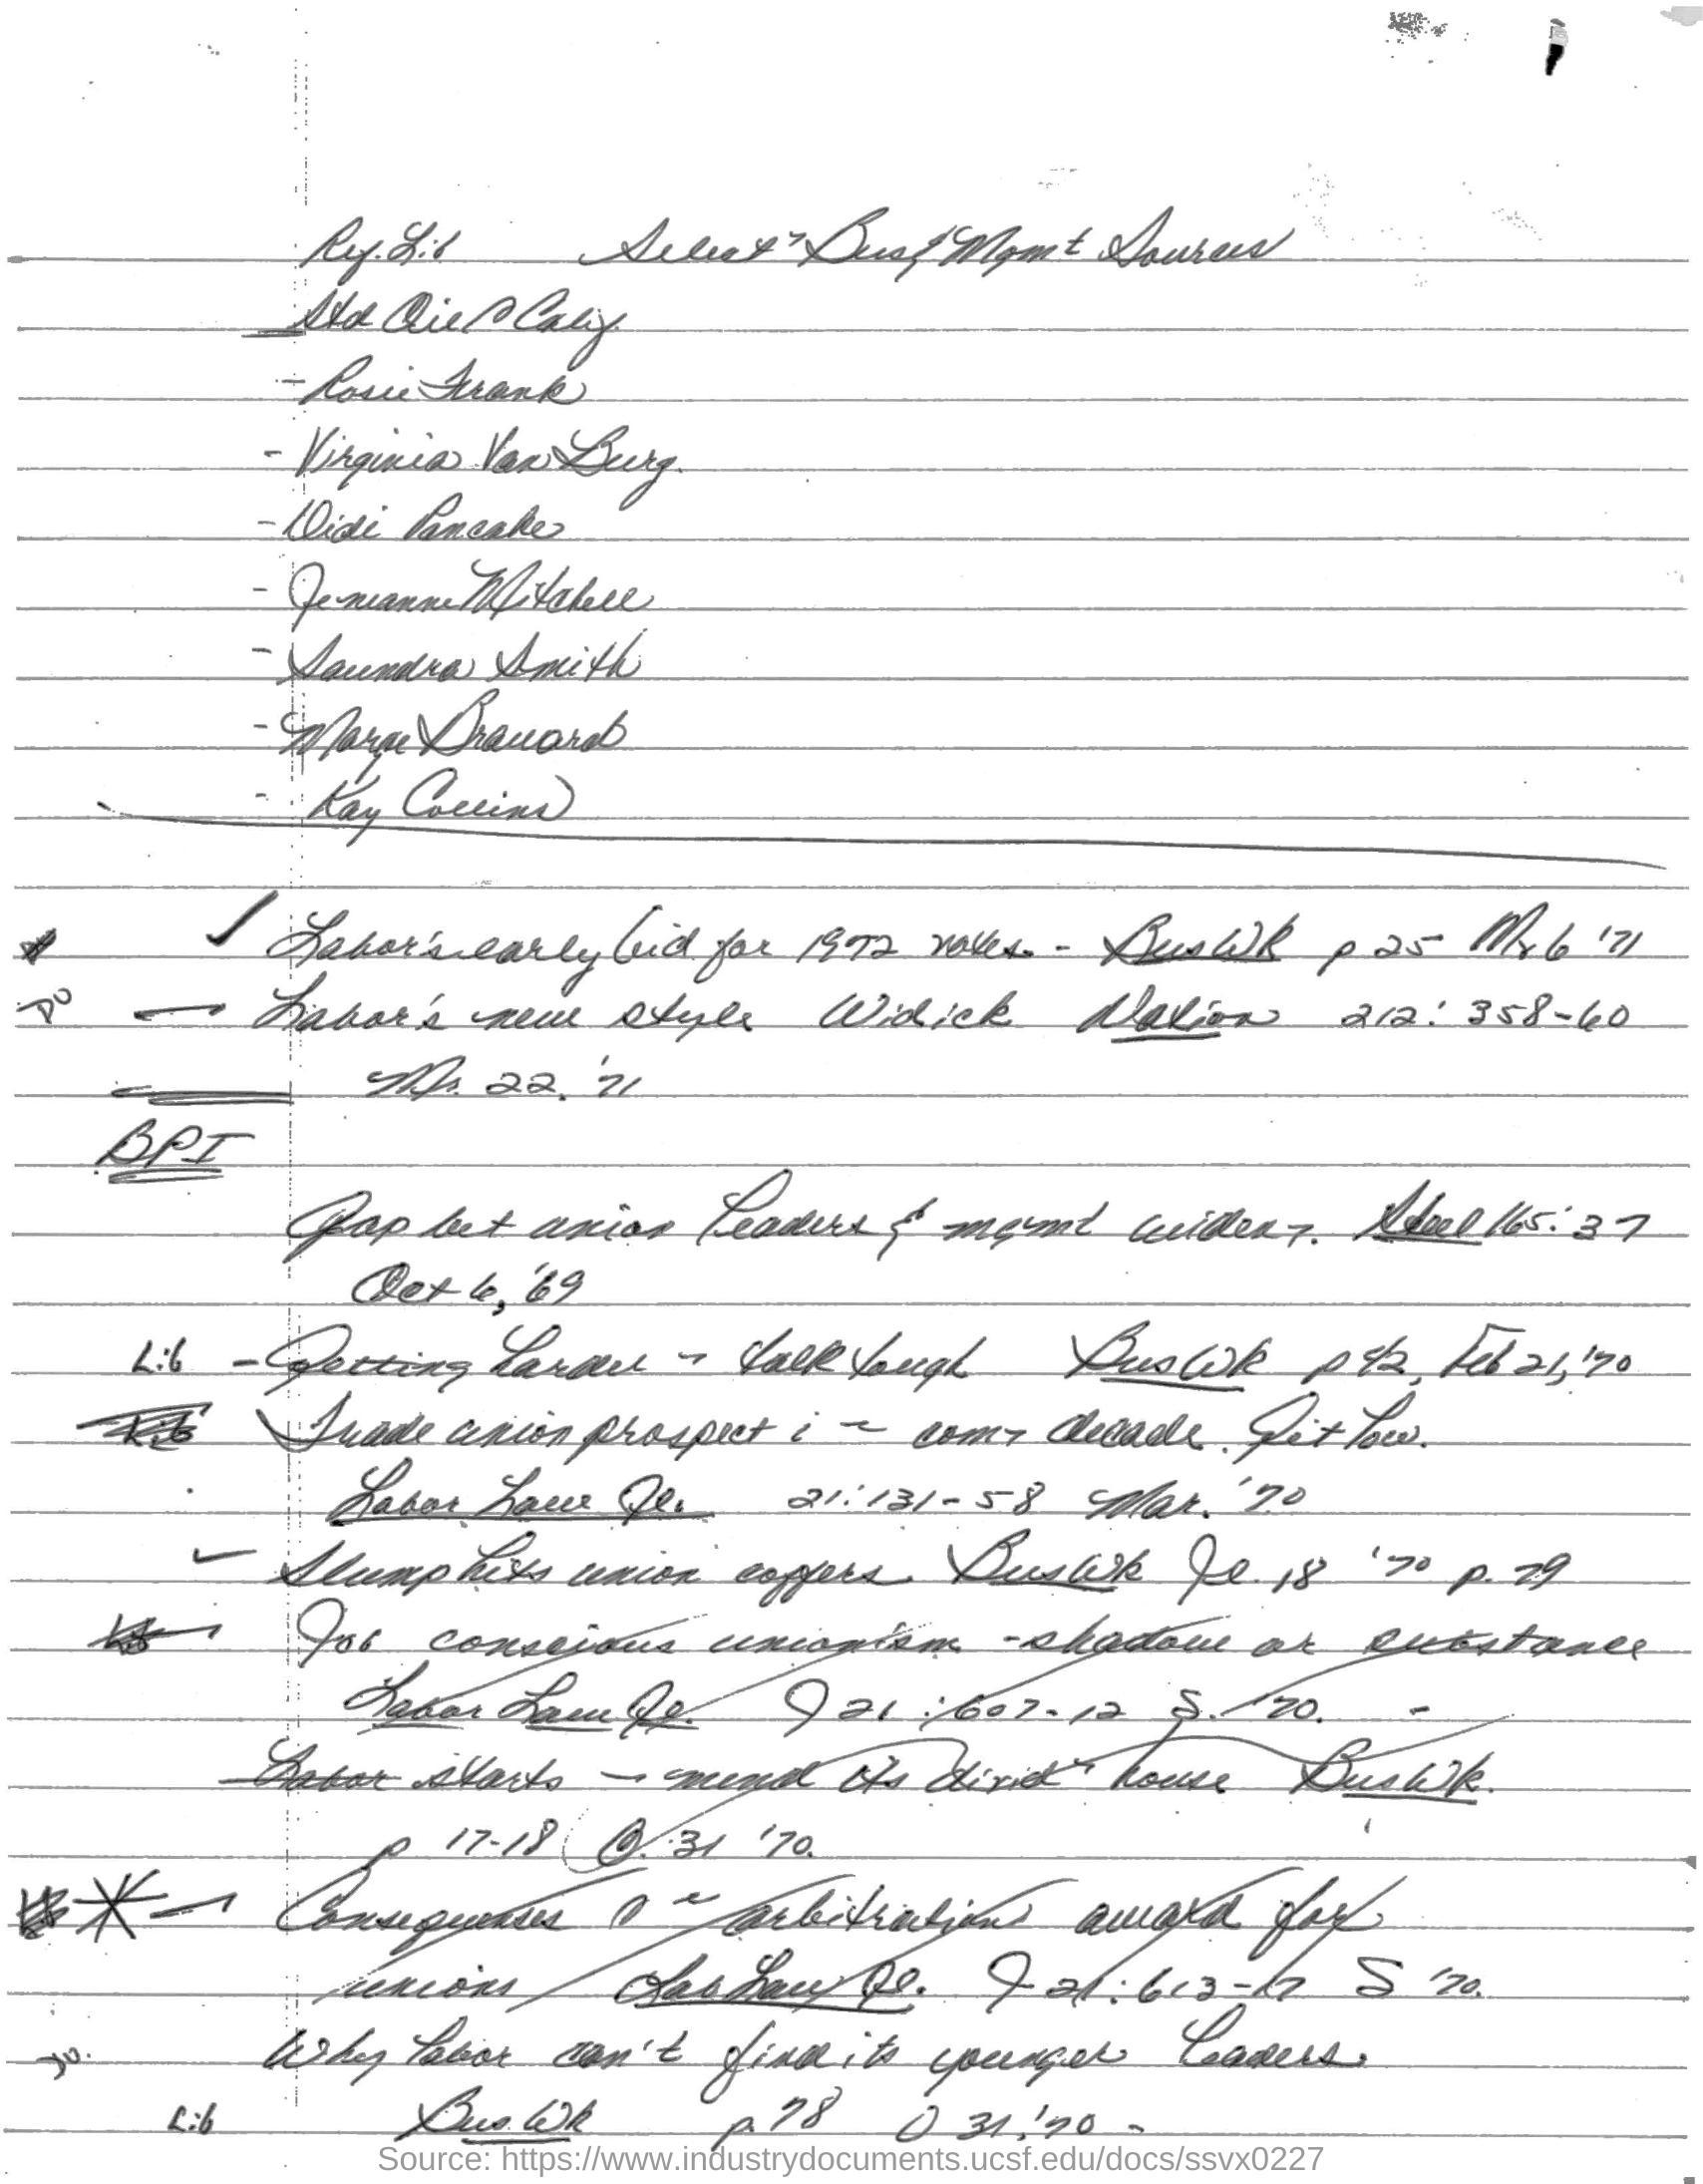 Ref. Lib Select Bus & Mgmt Sources
Std Oil Calif.
- Rosie Frank
- Virginia Van Burg.
- Didi Pancake
- Mitchell
- Saundra Smith
- Marge
- Kay Collins
Labor's early bid for 1972 votes - Bus Wk p 25 Mr 6 '71
Labor's new style Widick Nation 212: 358-60
Mr. 22, '71
BPI
Gap bet union leaders & mgmt widens. Steel 165: 37
Oct 6, '69
Lib - Getting harder talk tough Bus Wk p 42, Feb 21, '70
Trade union prospect i com decade. Gitlow.
Labor Law Jl. 21: 131-58 Mar. '70
Slump hits union coffers Bus Wk Jl. 18 '70 p. 79
Job conscious unionism - shadow or substance
Labor Law Jl. 21: 607-12 S. '70. -
Labor starts mend its divid house Bus Wk.
p 17-18 O. 31 '70.
Consequenses arbitration award for
unions Lab Law Jl. 21: 613-17 S '70.
Why labor can't find its younger leaders.
Lib Bus. Wk p. 78 O 31, '70 -
Source: https://www.industrydocuments.ucsf.edu/docs/ssvx0227